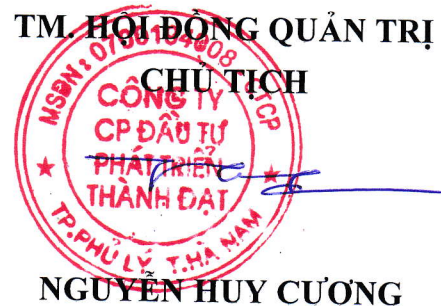 TM. HỘI ĐỒNG QUẢN TRỊ
CHỦ TỊCH
MSDN: 0700194008
CTCP
CÔNG TY
CP ĐẦU TƯ
PHÁT TRIỂN
THÀNH ĐẠT
TP.PHỦ LÝ T.HÀ NAM
NGUYỄN HUY CƯƠNG